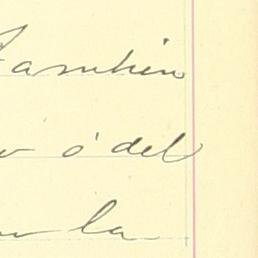 También
ó del
la